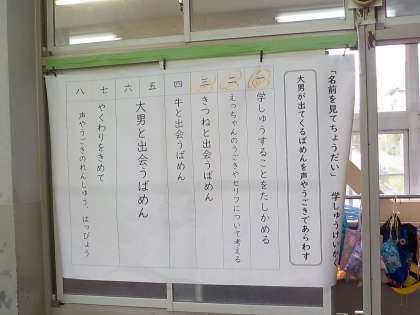 「名前を見てちょうだい」　学しゅうけいかく
大男が出てくるばめんを声やうごきであらわす
一　学しゅうすることをたしかめる
二　えっちゃんのうごきやセリフについて考える
三　きつねと出会うばめん
四　牛と出会うばめん
五
六　大男と出会うばめん
七　やくわりをきめて
八　声やうごきのれんしゅう、はっぴょう